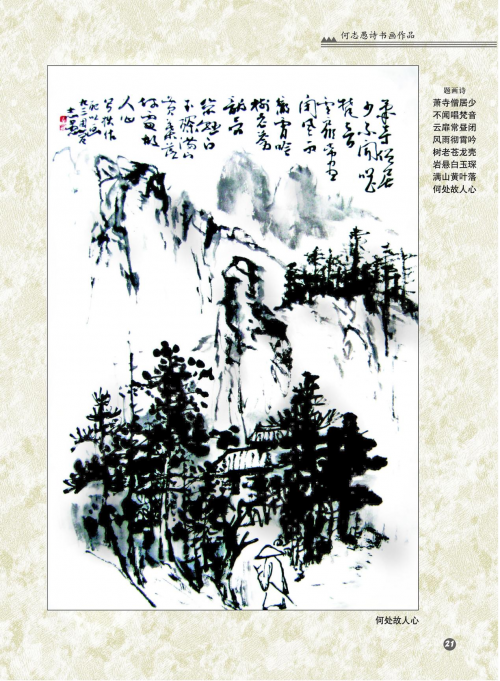 何志愿诗书画作品
萧寺僧居
少不闻唱
梵音
云扉常昼
闭风雨
彻宵吟
树老苍
龙壳
岩悬白
玉琛满山
黄叶落
何处故
人心
题画诗
萧寺僧居少
不闻唱梵音
云扉常昼闭
风雨彻宵吟
树老苍龙壳
岩悬白玉琛
满山黄叶落
何处故人心
何处故人心
21